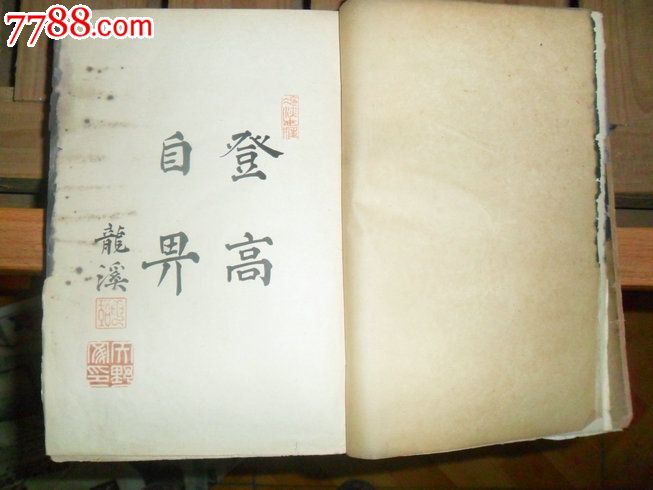 7788.com
登高
自卑
龍溪